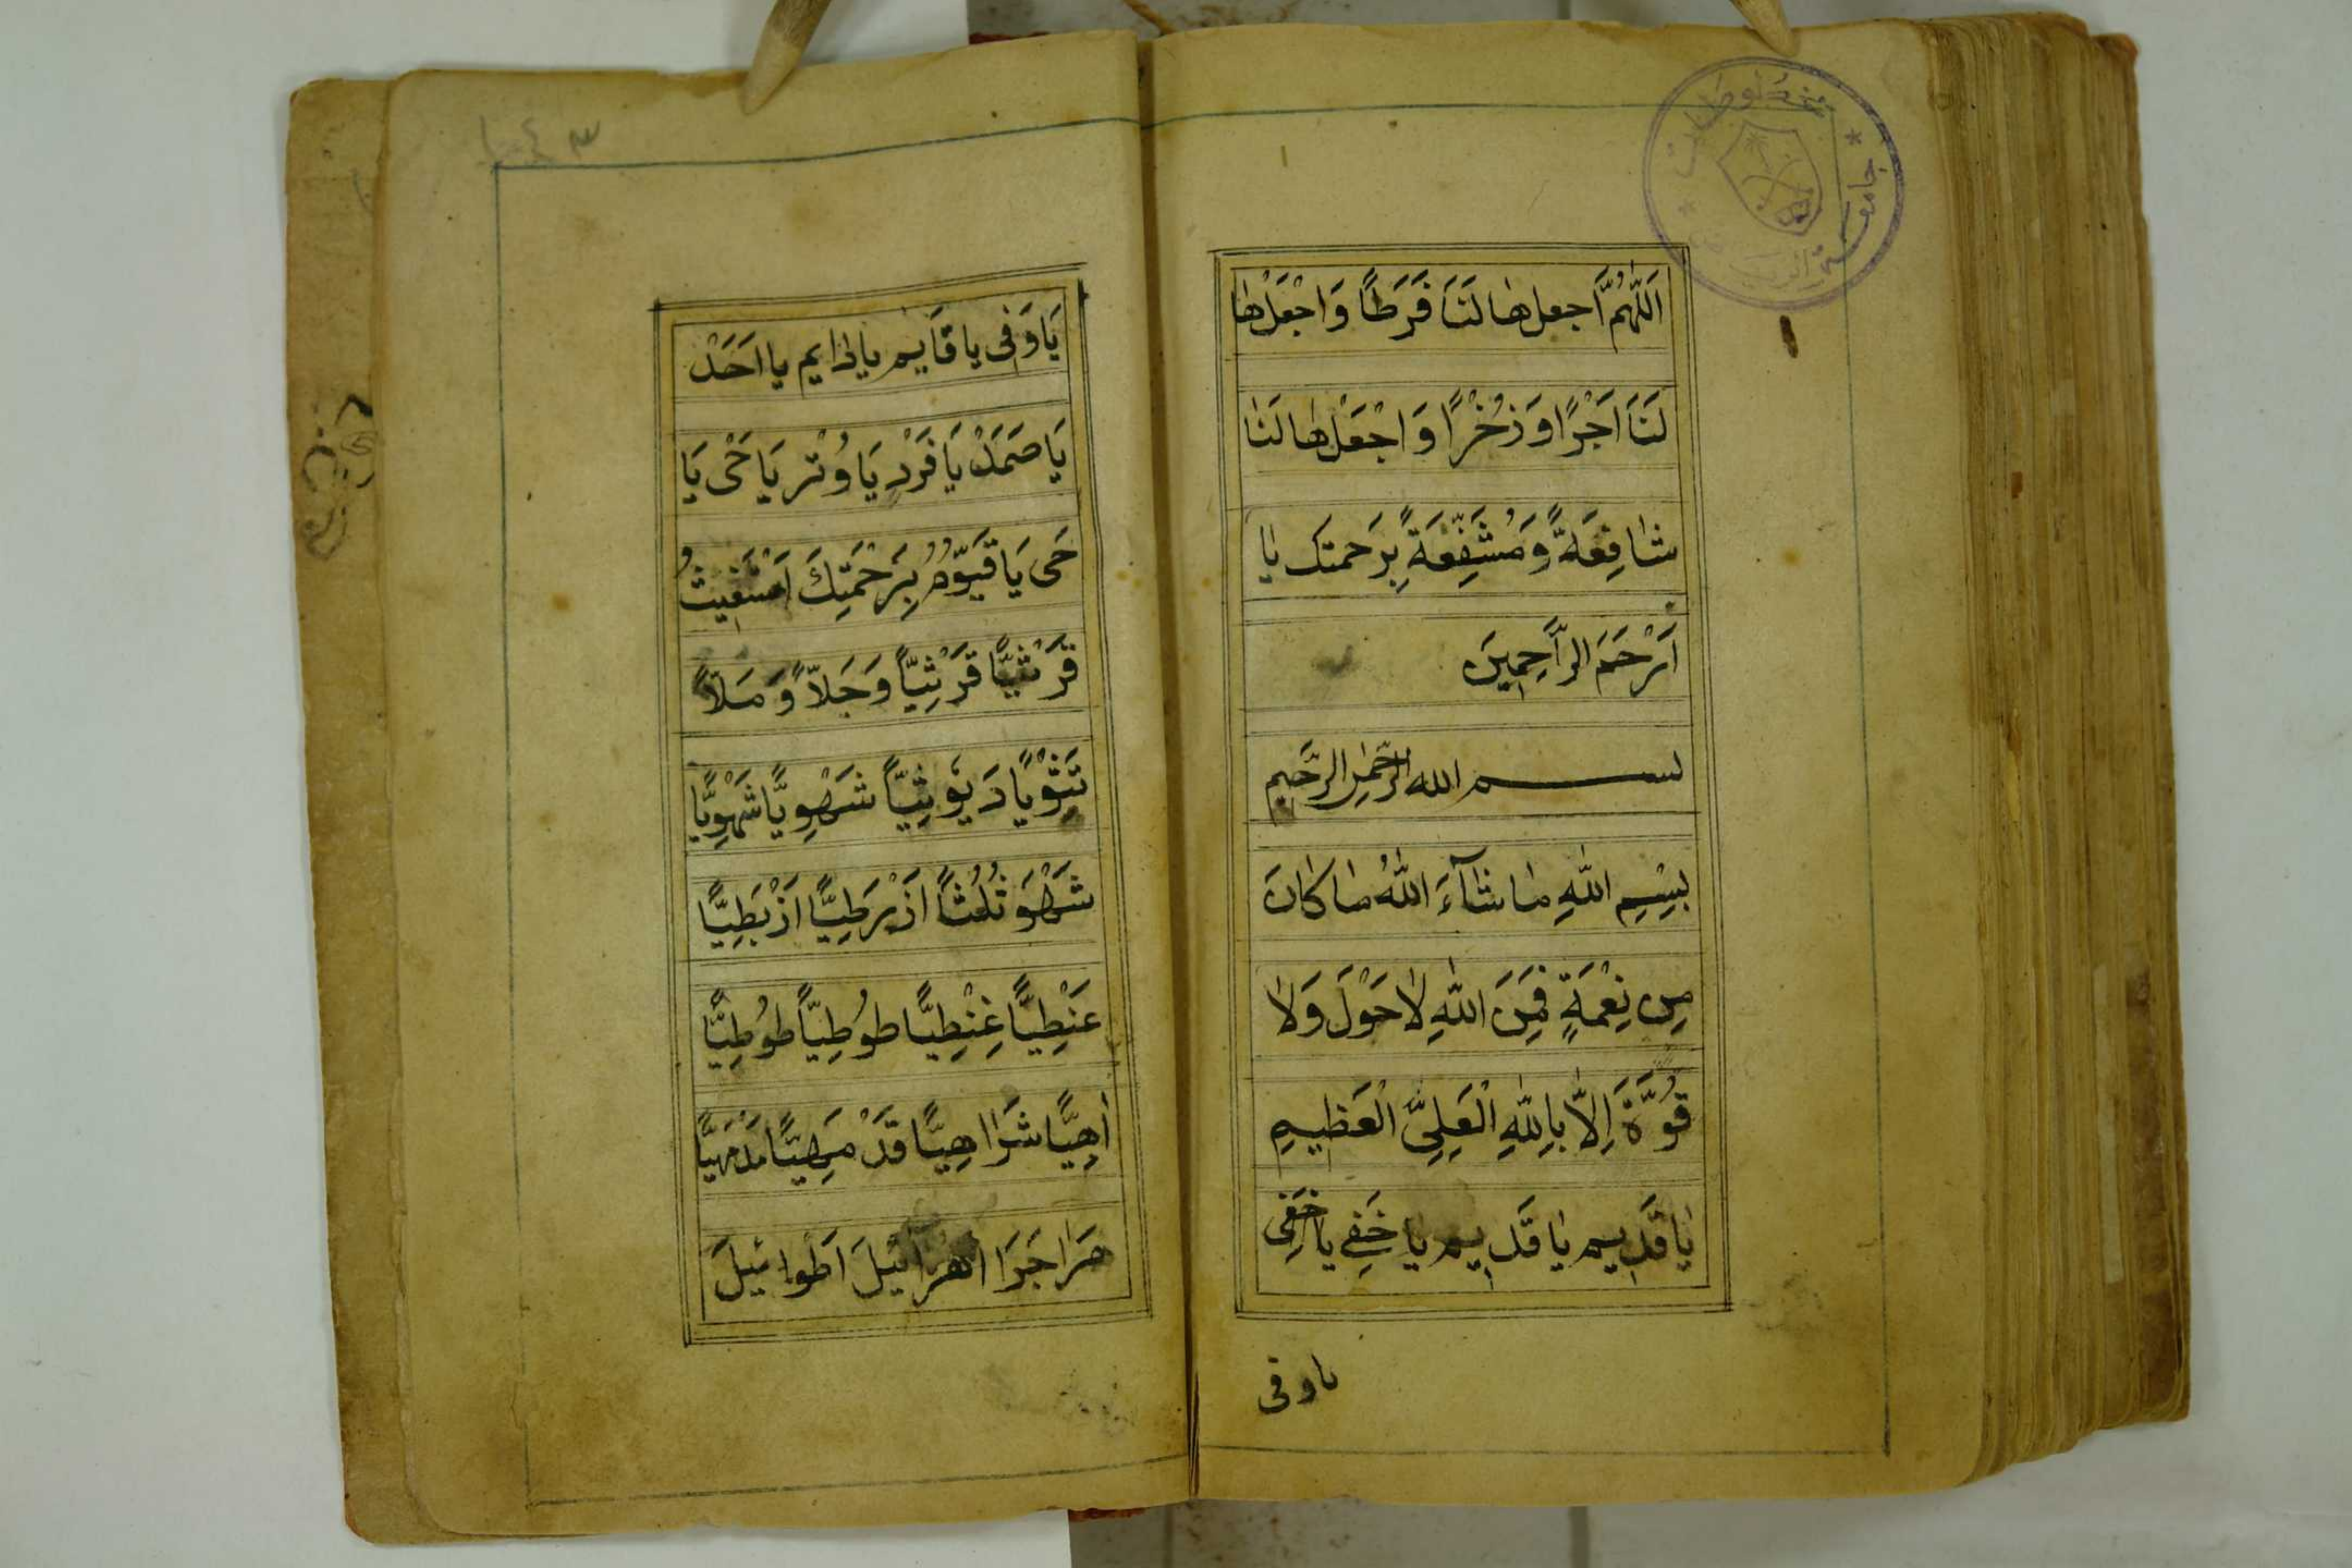 اَللّٰهُمَّ اجعلها لَنَا فَرَطًا وَاجْعَلْها
لَنَا اَجْرًا وَذُخْرًا وَاجْعَلْها لَنٰا
شٰافِعَةً وَمُشَفَّعَةً بِرَحمتك يٰا
اَرْحَمَ الرَّاحِمِينَ
بسم الله الرَّحْمٰنِ الرَّحِيم
بِسْمِ اللّٰهِ مٰا شٰآءَ اللّٰهُ مٰا كٰانَ
مِن نِعْمَةٍ فَمِنَ اللّٰهِ لٰا حَوْلَ وَلٰا
قُوَّةَ اِلّٰا بِاللّٰهِ الْعَلِىِّ الْعَظِيمِ
يٰا قَدِيم يٰا قَدِيم يا خَفِي يا خَفِى
يا وفى
يَا وَفِى يا قَايِم يا دايم يا اَحَدْ
يَا صَمَدْ يَا فَرْدِ يَا وُتْر يَا حَىْ يَا
حَى يَا قَيُّومُ بِرَحْمَتِكَ اَسْتَغِيثُ
قَرَثِيًّا قَرَثِيًّا وَجَلاًّ وَمَلاً
شَهْوِيًّا شَهْوِيًّا
شَهْوَ ثُلُثًا اَذْرَطِيًّا اَذْبَطِيًّا
عَنْطِيًّا غِنْطِيًّا طُوُطِيًّا طُوُطِيًّا
اَهِيًّا شَرَاهِيًّا قَدْ مَهِيًّا مَدْمَهِيًّا
هَرَا جَرَا اهرائيلَ اَطوائيلَ
جامعة الرياض